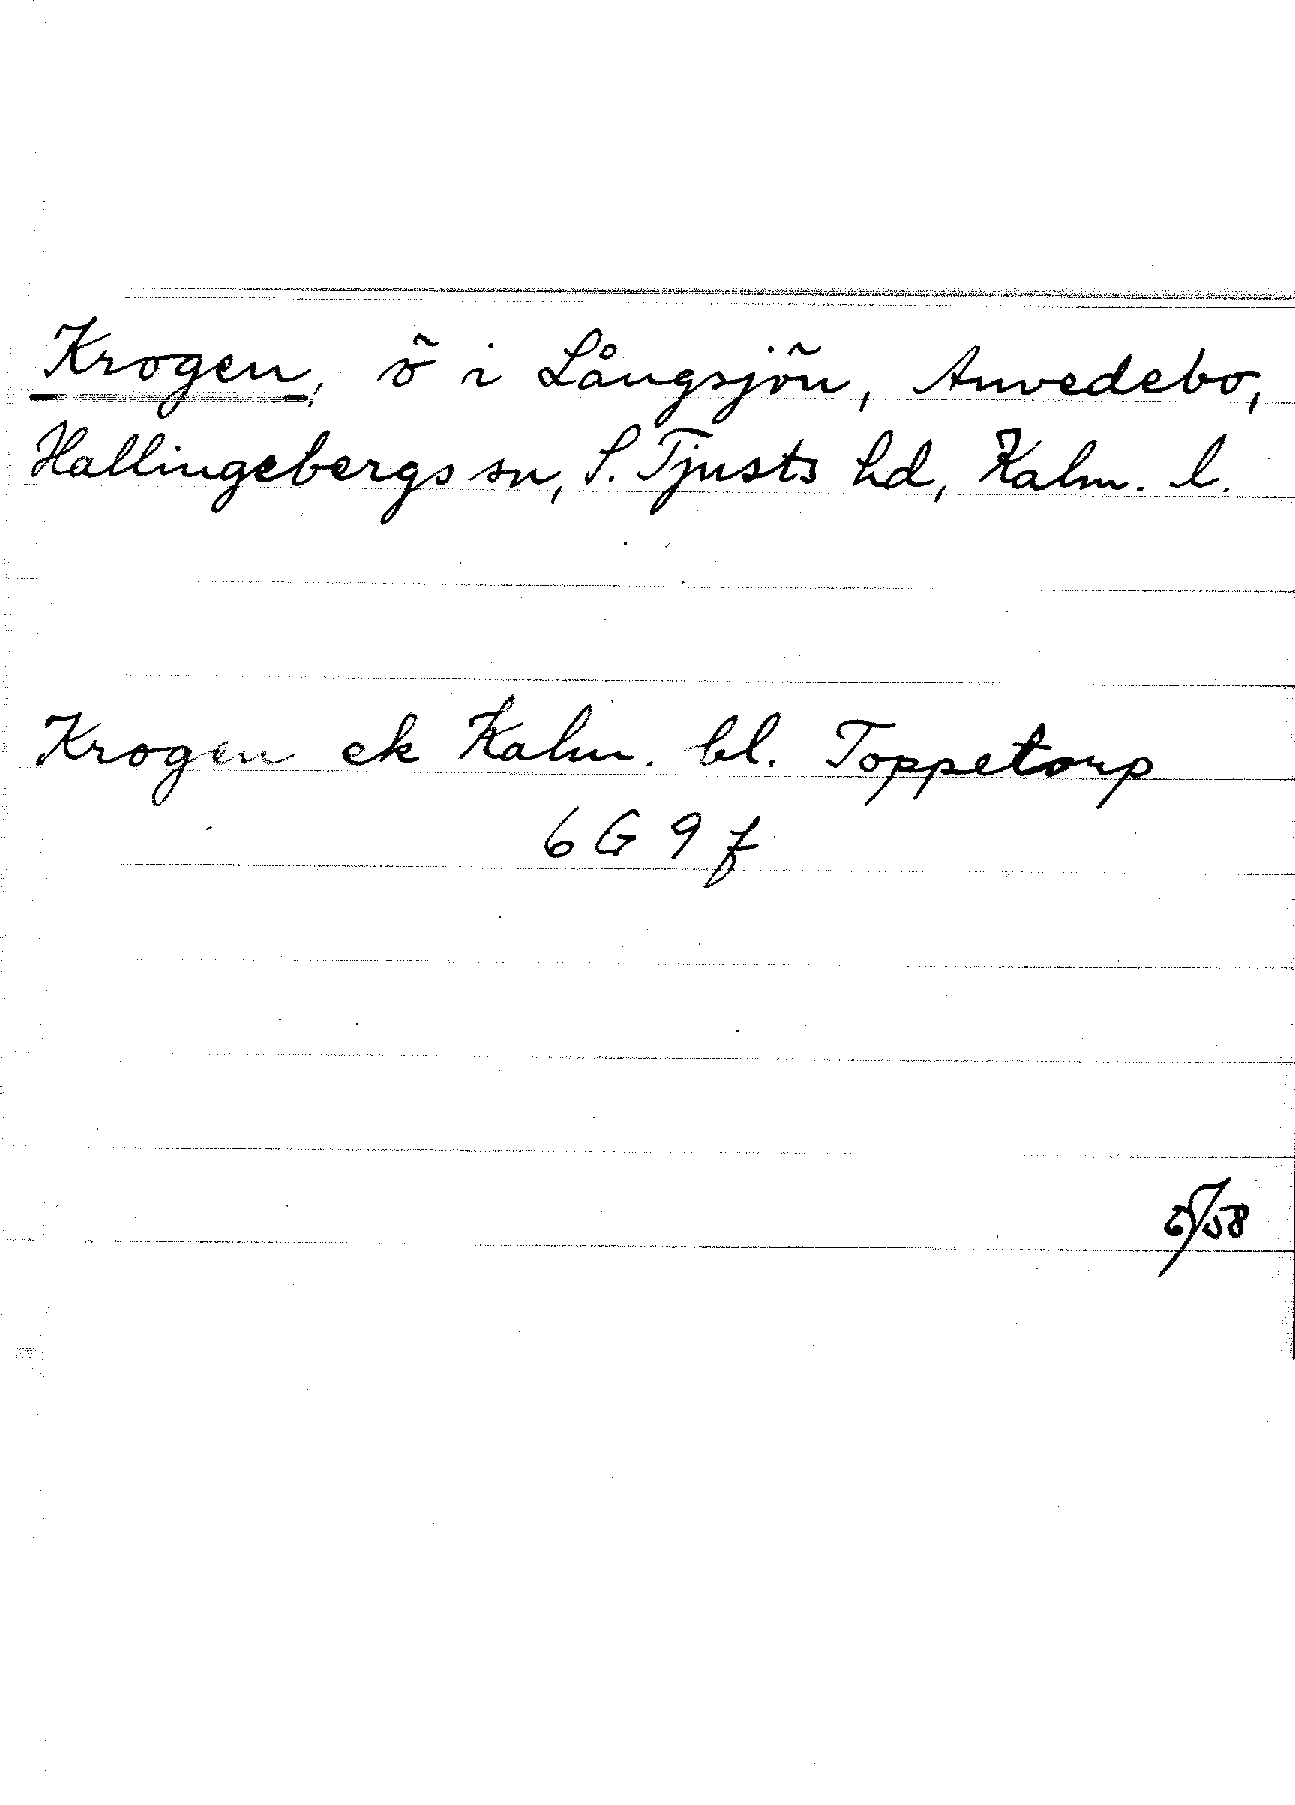 Krogen, ö i Långsjön, Anvedebo,
Hallingebergs sn, S. Tjusts hd, Kalm. l.
Krogen ek Kalm. bl. Toppetorp
6 G 9 f